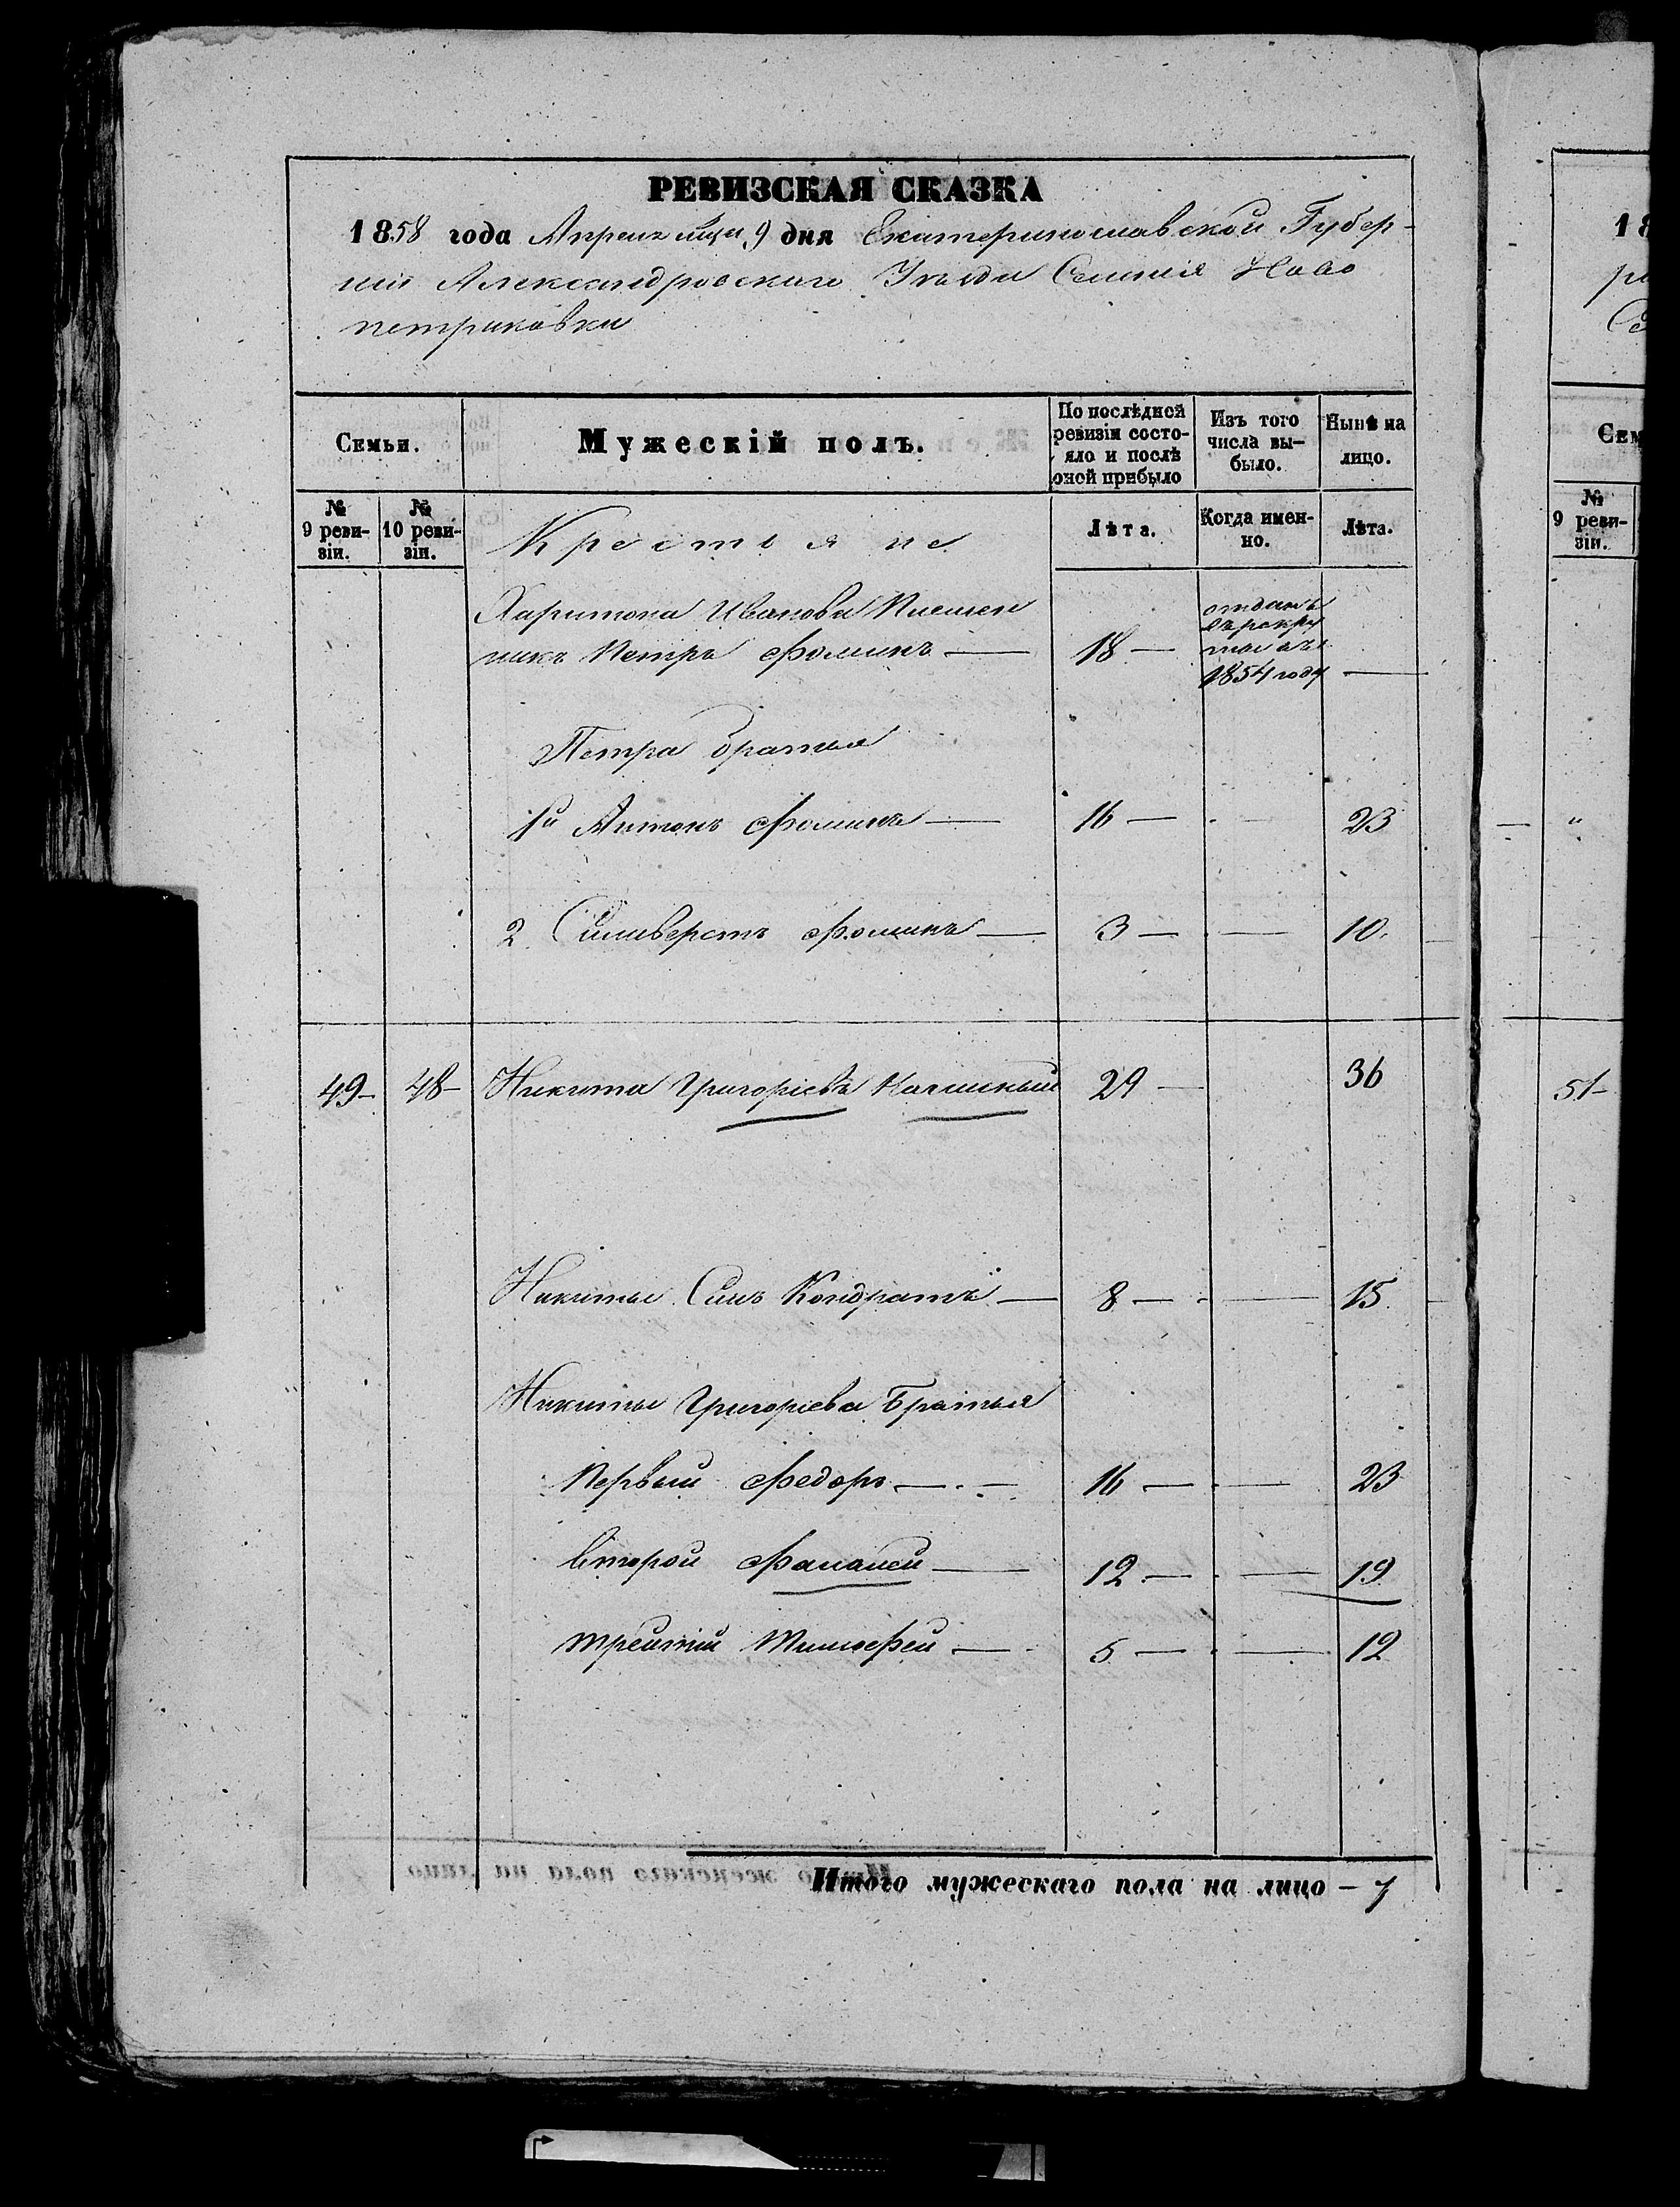 РЕВИЗСКАЯ СКАЗКА
1858 года Апреля мца 9 дня Екатеринославской Губер-
нiи Александровскаго Уезда Селения Ново
петриковки
Семьи.
Мужескій полъ.
По послѣдней ревизіи состо-яло и послѣ оной прибыло
Изъ того числа вы-было.
Нынѣ на лицо.
№ 9 реви-зіи.
№ 10 реви-зіи.
Крестьяне
Лѣта.
Когда имен-но.
Лѣта.
Харитона Иванова Племен
никъ Петръ Фоминъ — 18 — отданъ въ рекруты въ 1854 году —
Петра братья
1й Антонъ Фоминъ — 16 — — 23
2. Силиверстъ Фоминъ — 3 — — 10.
49 — 48 — Никита Григорiевъ 29 — 36
Никиты Сынъ Кондратъ — 8 — — 15
Никиты Григорiева Братья
Первый Федоръ — 16 — — 23
второй Фалалей — 12 — — 19
третiй Тимофей — 5 — — 12
Итого мужескаго пола на лицо — 7
18
Сем
№
9 реви-
зіи.
51